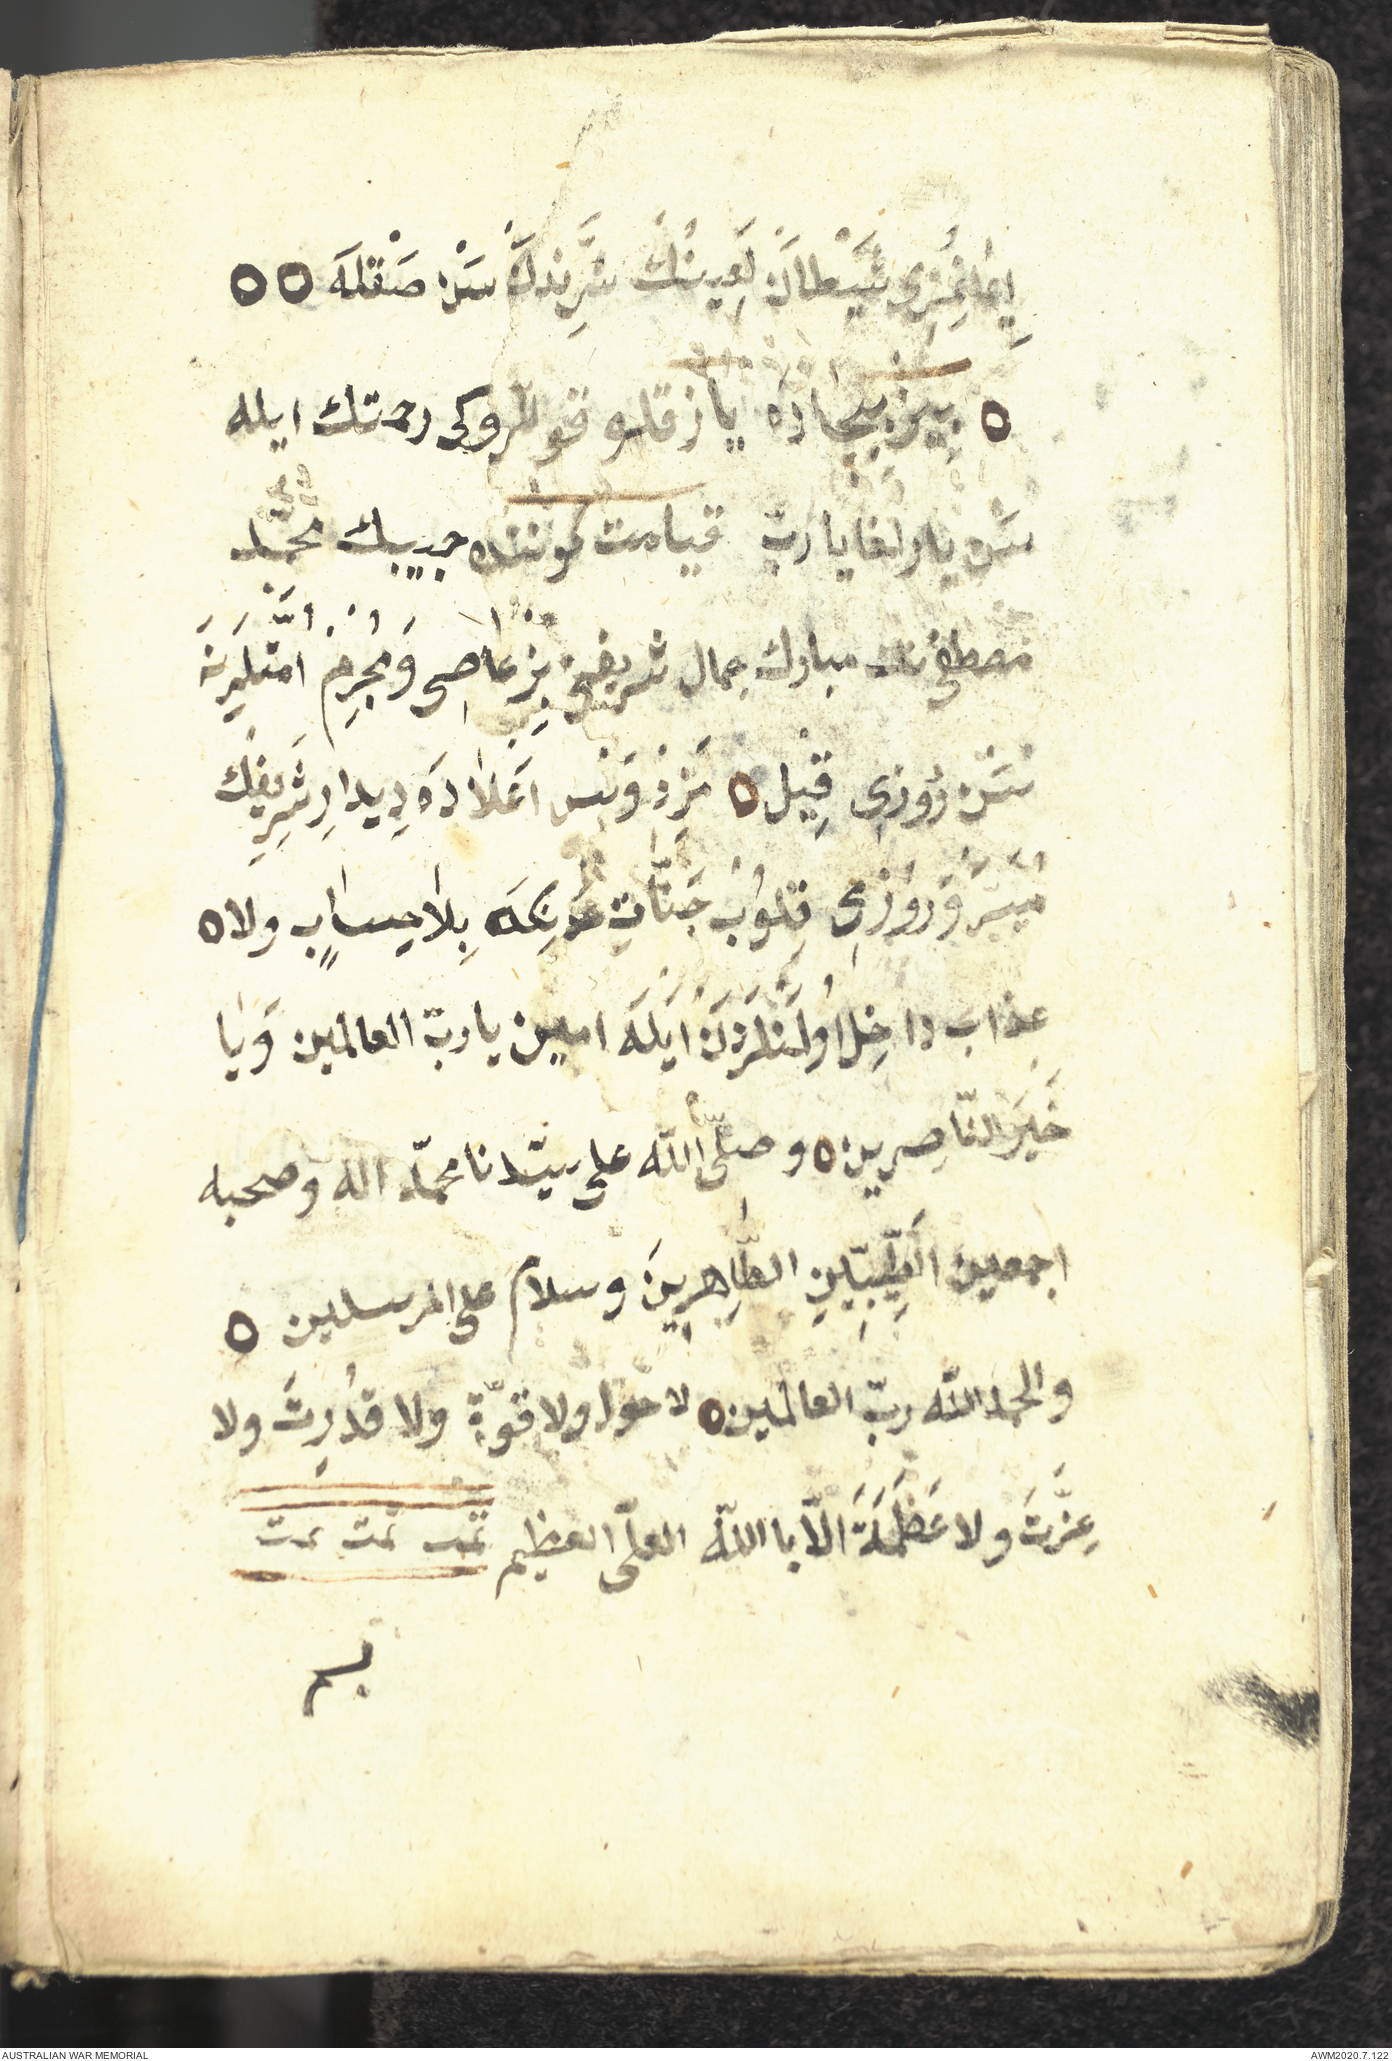 اِيمَانْمِزِى شَيْطَانِ لَعِينُكْ شَرِّنْدَنْ سَنْ صَقْلَه
بِيز بيچاره يازقلو قوللروكى رحمتك ايله
سن يارلغا يا ربّ قيامت كوننده حبيبك محمّد
مصطفى نك مبارك جمال شريفنى بِز عاصى وَ مُجْرِمْ امّتلرينه
سَنْ رُوزِى قِيل فِرْدَوْسِ اَعْلاَدَه دِيدارِ شَرِيفِكْ
مُيَسَّرْ وَ رُوزِى قِلُوبْ جَنّاتِ عدنِكَه بِلاَ حِسابٍ ولا
عذاب داخِل اُولَنْلَرْدَنْ اَيْلَه امين يا ربّ العالمين وَيَا
خَيْرَ النّاصِرين و صلّى اللّه على سيّدنا محمّد اله وصحبه
اجمعين اَلطَّيِّبِينَ الطَّاهِرِينَ وسلام على المرسلين
والحمد اللّه ربّ العالمين لا حول ولا قوّة ولا قدْرِتَ ولا
عِزَّتَ ولا عَظَمَةَ الاّ بااللّه العلى العظيم تمت تمت تمت
بسم
AUSTRALIAN WAR MEMORIAL
AWM2020.7.122